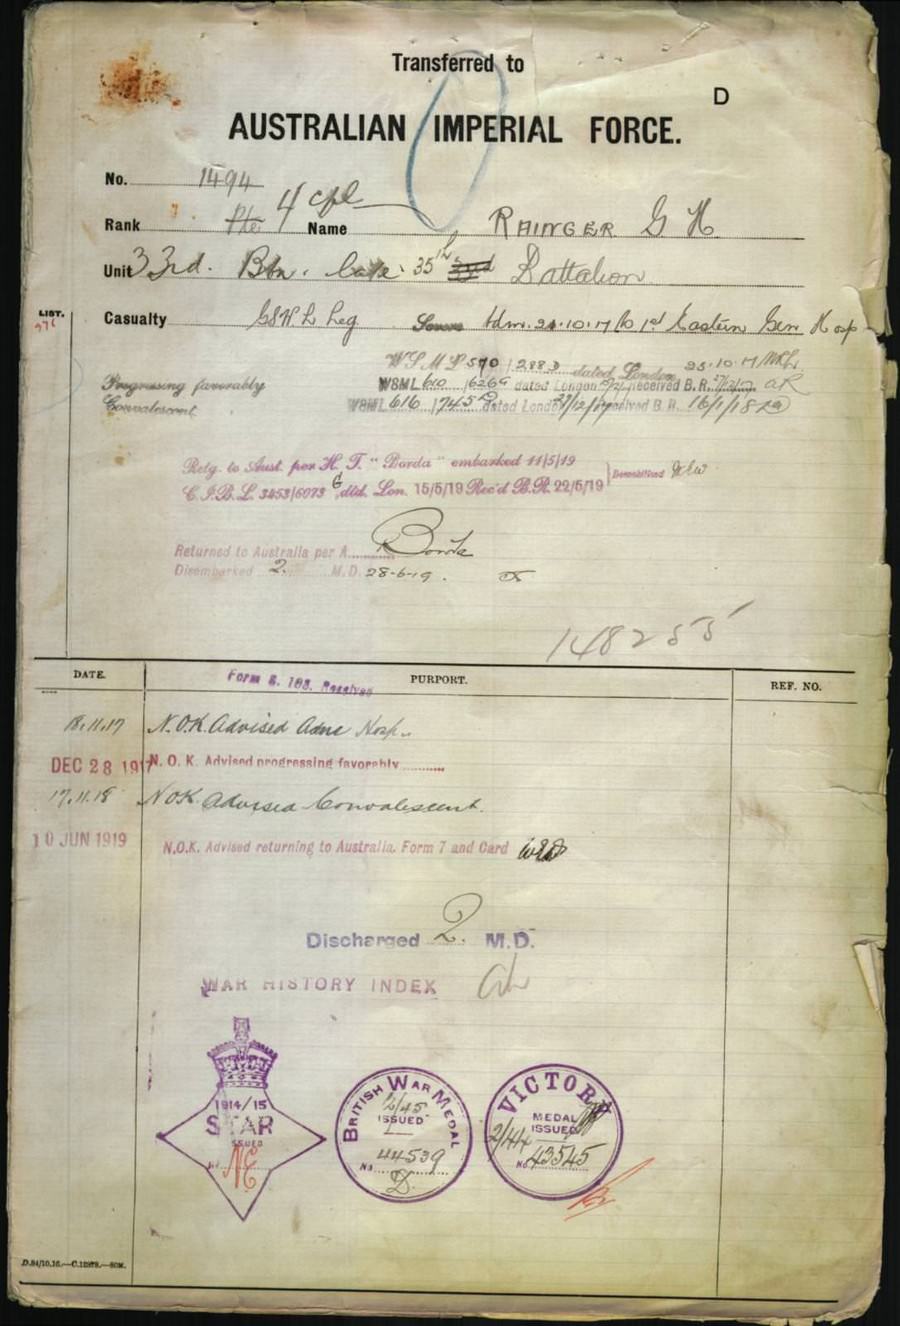 Transferred to
D
AUSTRALIAN IMPERIAL FORCE.
No. 1494
Rank Pte Cpl Name RAINGER G H
Unit 33rd. Btn. late 35th Battalion
LIST.
976
Casualty GSW L Leg. Severe Adm. 21.10.17 to 1st Eastern Gen Hosp
WSML 570 / 2883 dated London 25.10.17
Progressing favorably W8ML 610 / 6269 dated London Received B.R.
Convalescent W8ML 616 / 745 dated London 27/12/17 Received B.R. 16/1/18
Retg. to Aust. per H. T. "Borda" embarked 11/5/19
C.I.B.L. 3453/6073 G dtd. Lon. 15/5/19 Rec'd B.R. 22/5/19
Returned to Australia per A Borda
Disembarked 2. M.D. 28-6-19.
148255
DATE. PURPORT. REF. NO.
Form B. 103. Received
18.11.17 N.O.K. Advised Adm Hosp.
DEC 28 1917 N.O.K. Advised progressing favorably
17.11.18 NOK Advised Convalescent.
10 JUN 1919 N.O.K. Advised returning to Australia. Form 7 and Card
Discharged 2. M.D.
WAR HISTORY INDEX
1914/15
STAR
ISSUED
No. NE
BRITISH WAR MEDAL
2/45
ISSUED
No. 44539
D.
VICTORY
MEDAL
ISSUED
2/44
No. 43545
D.84/10.16.—C.12878.—50M.